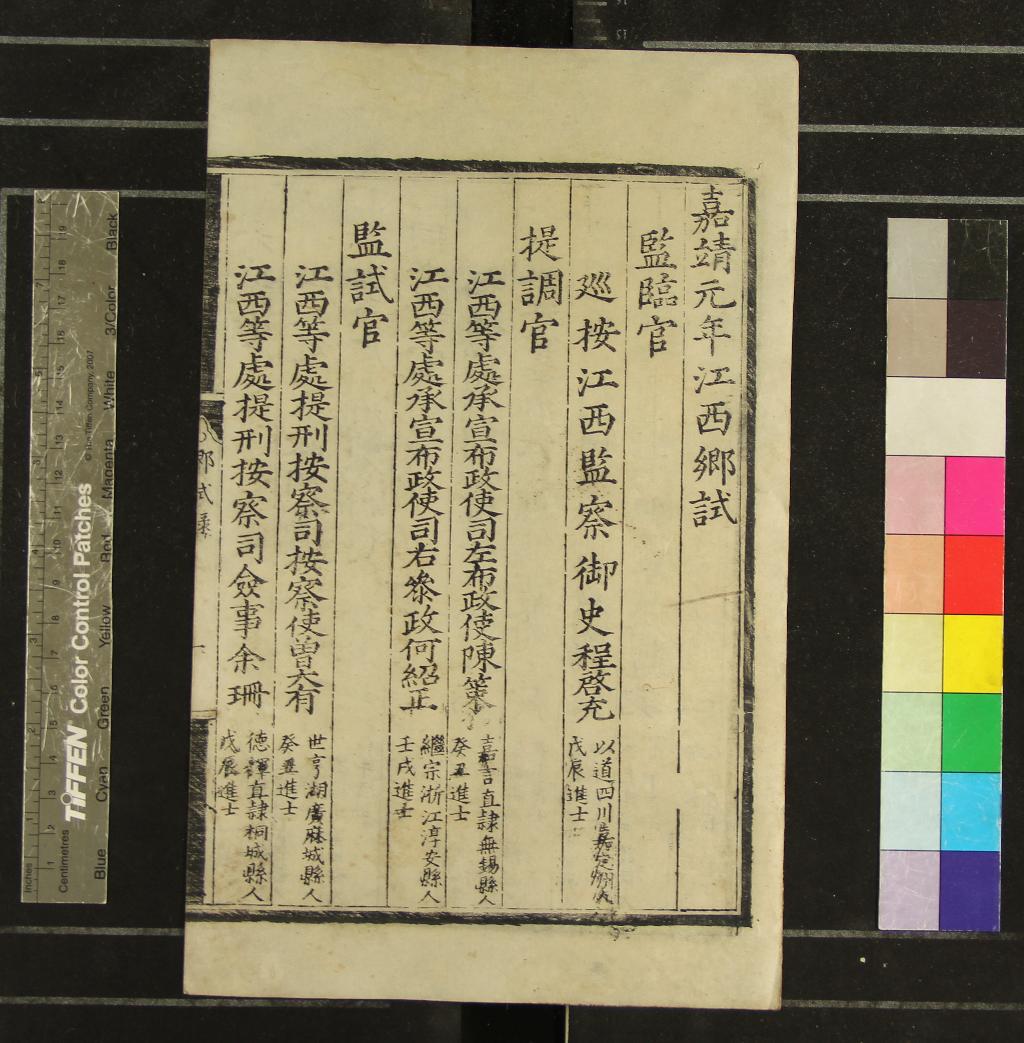 嘉靖元年江西鄉試
監臨官
巡按江西監察御史程啓充
以道四川嘉定州人
戊辰進士
提調官
江西等處承宣布政使司左布政使陳策
嘉言直隷無錫縣人
癸丑進士
江西等處承宣布政使司右叅政何紹正
繼宗浙江淳安縣人
壬戌進士
監試官
江西等處提刑按察司按察使曽大有
世亨湖廣麻城縣人
癸丑進士
江西等處提刑按察司僉事余珊
德輝直隷桐城縣人
戊辰進士
一
TIFFEN Color Control Patches
© The Tiffen Company, 2007
Blue Cyan Green Yellow Red Magenta White 3/Color Black
Inches
Centimetres